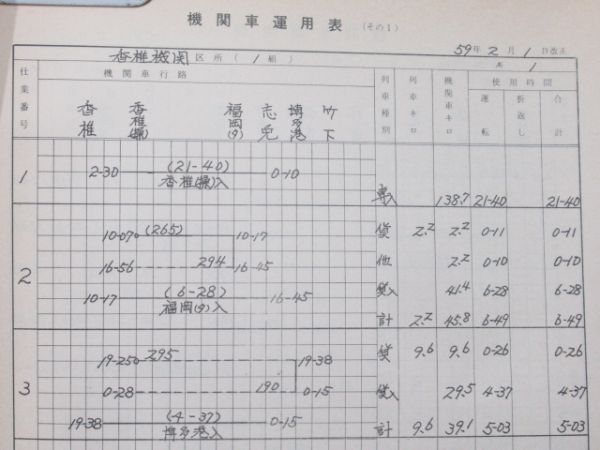 機関車運用表 (その1)
59年2月1日改正
香椎機関区所(1組) 1
仕業番号 機関車行路 列車種別 列車キロ 機関車キロ 使用時間
運転 折返し 合計
香椎 香椎(操) 福岡(タ) 志免 博多港 竹下
1 2-30 (21-40) 0-10
香椎(操)入 138.7 21-40 21-40
10-07 (265) 10-17 貨 2.2 2.2 0-11 0-11
2 16-56 294 16-45 2.2 0-10 0-10
10-17 (6-28) 16-45 41.4 6-28 6-28
福岡(タ)入 計 2.2 45.8 6-49 6-49
19-25 295 19-38 貨 9.6 9.6 0-26 0-26
3 0-28 190 0-15 29.5 4-37 4-37
19-38 (4-37) 0-15 計 9.6 39.1 5-03 5-03
博多港入